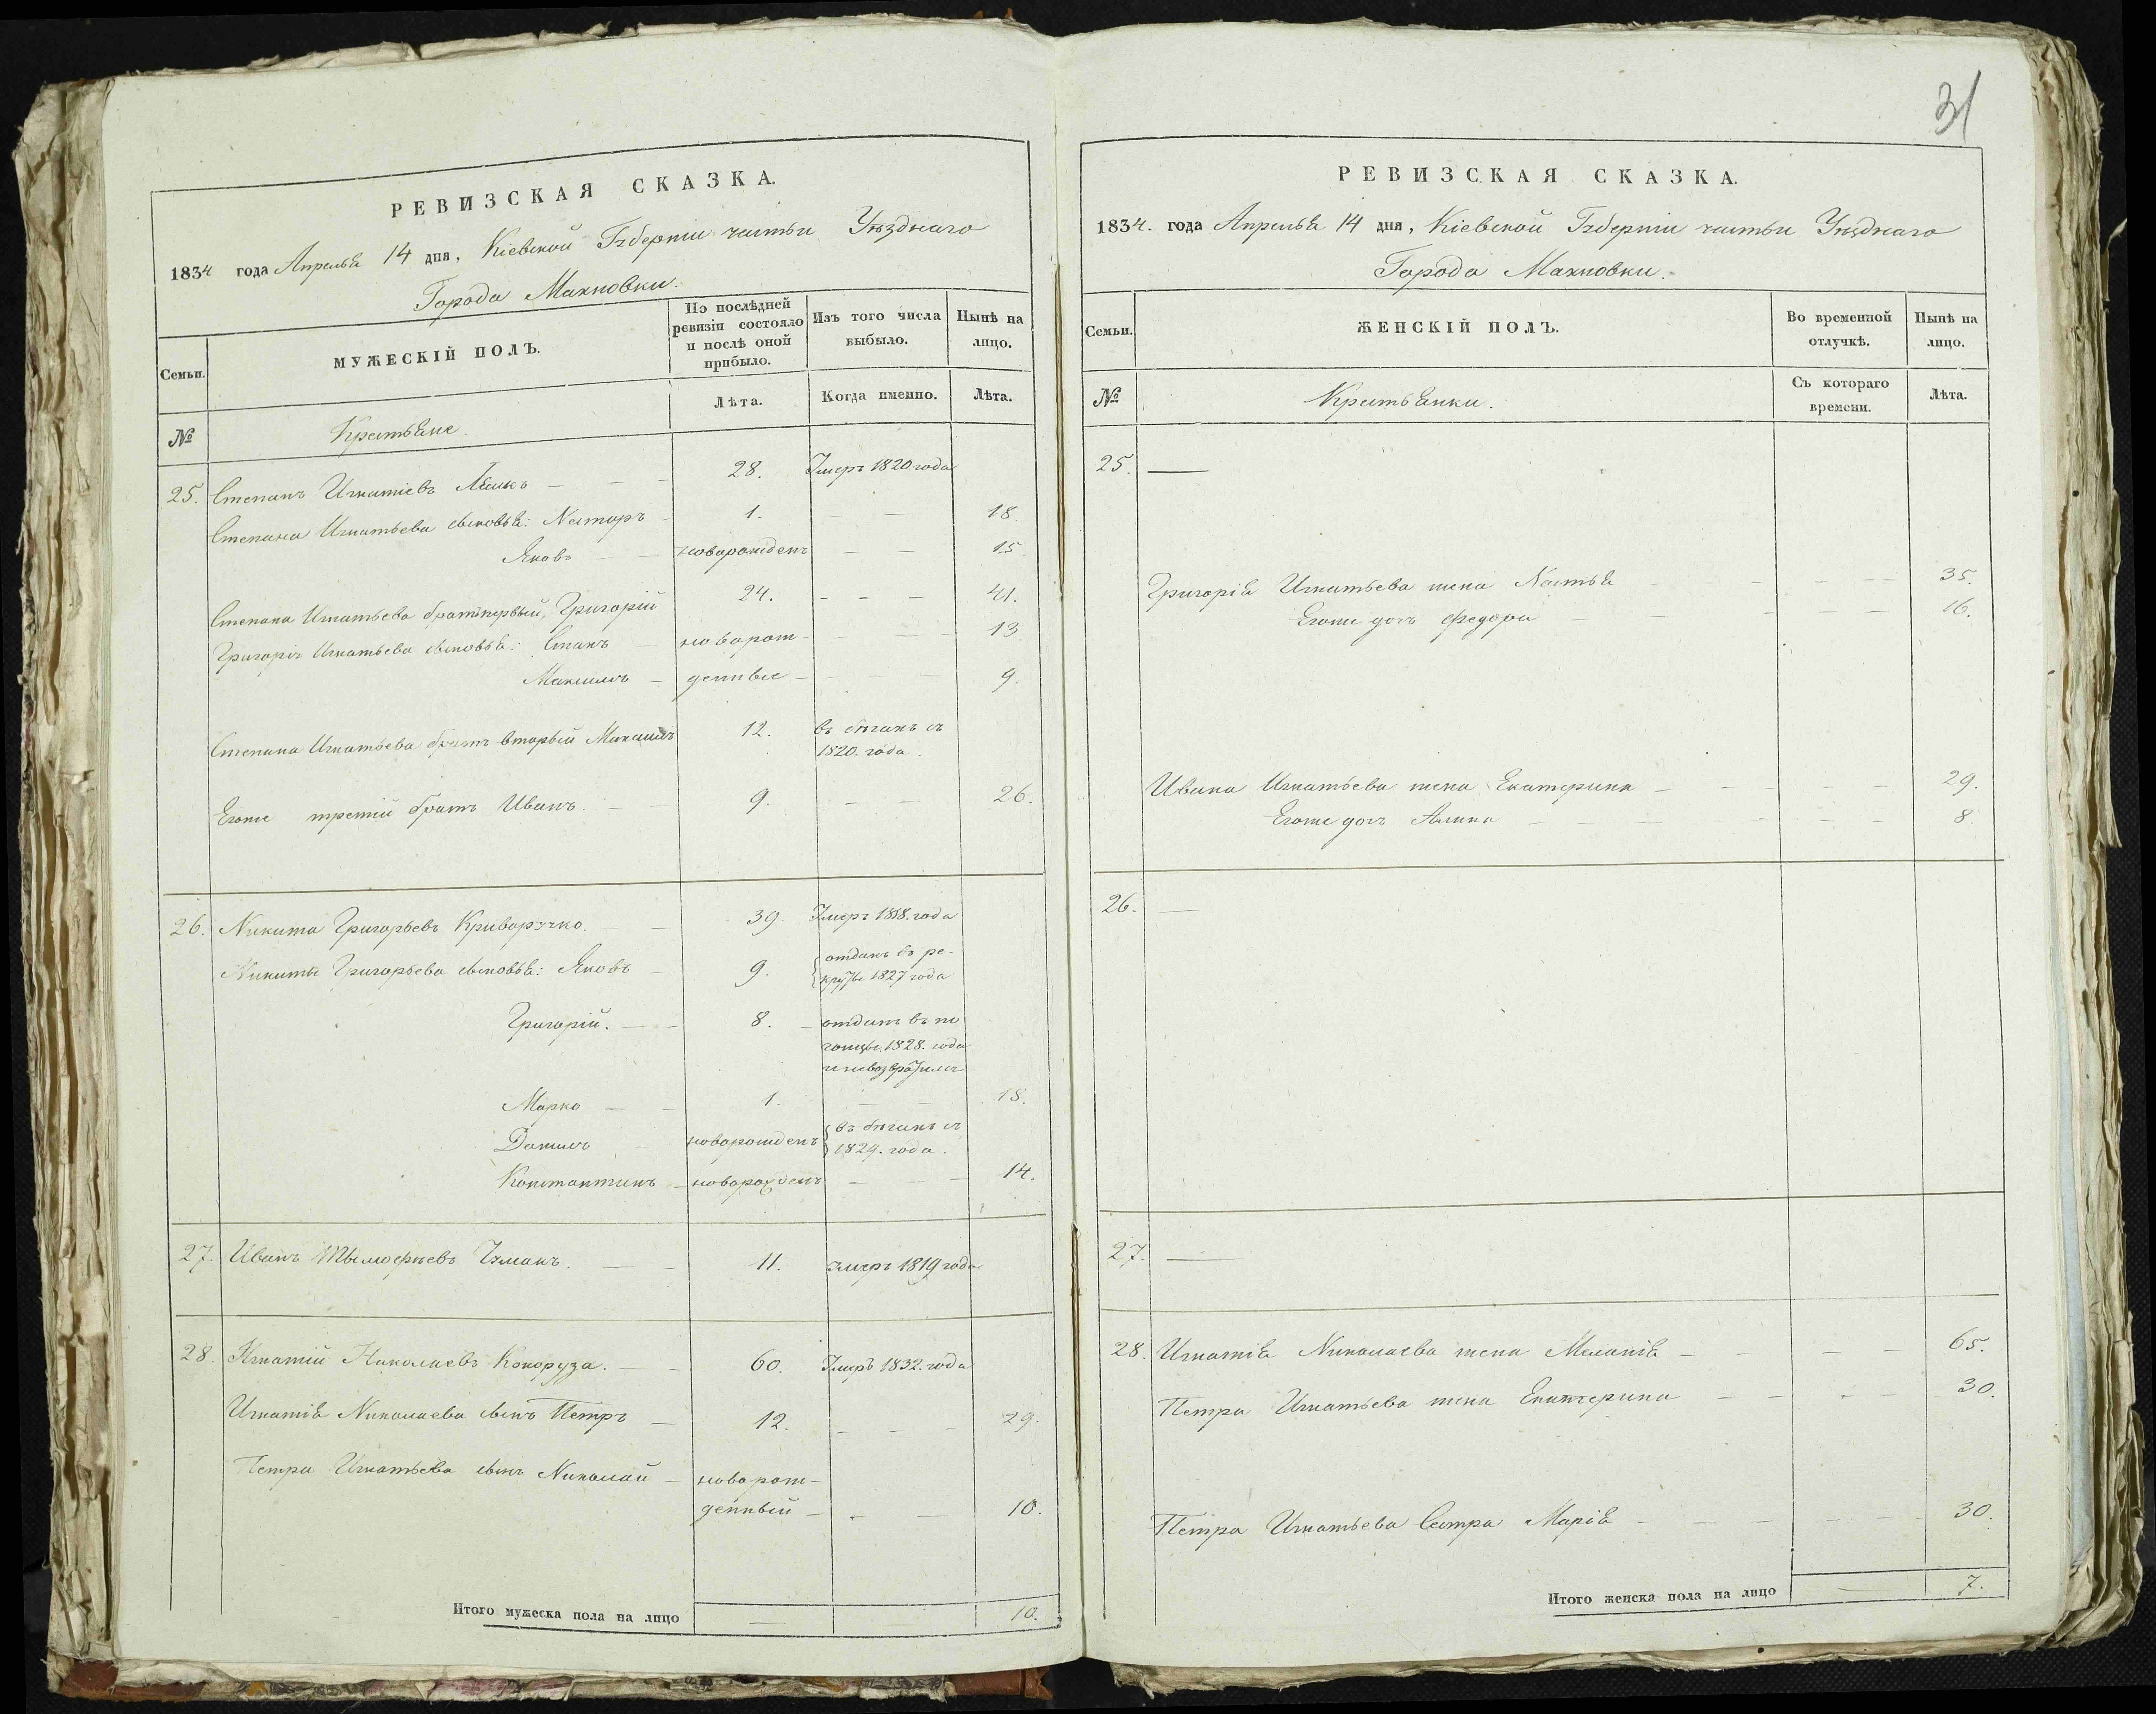 РЕВИЗСКАЯ СКАЗКА.
1834 года Апреля 14 дня, Кіевской Губерніи части Уѣзднаго
Города Махновки.
Семьи.
МУЖЕСКІЙ ПОЛЪ.
По послѣдней
ревизіи состояло
и послѣ оной
прибыло.
Изъ того числа
выбыло.
Нынѣ на
лицо.
№
Крестьяне.
Лѣта.
Когда именно.
Лѣта.
25. Степанъ Игнатіевъ — — 28. Умеръ 1820 года
Степана Игнатьева сыновья: Несторъ — 1. — — 18
Яковъ — — новорожденъ — — 15
Степана Игнатьева братъ первый, Григорій 24. — — — 41.
Григорія Игнатьева сыновья: — новорож- — — 13
Максимъ — денные — — — 9.
Степана Игнатьева братъ вторый Максимъ 12. въ бѣгахъ съ
1820. года
Егоже третій братъ Иванъ. — — 9. — 26.
26. Никита Григорьевъ Криворучко. — — 39. Умеръ 1818. года
Никиты Григорьева сыновья: Яковъ — 9. отданъ въ ре-
круты 1827 года
Григорій. — — 8. — отданъ въ по
гонцы. 1828. года
и невозвратился
Марко — — 1. — — 18.
— новорожденъ въ бѣгахъ съ
1829. года.
Константинъ — новорожденъ — — — 14.
27. Иванъ Тымофѣевъ Чумакъ. — — 11. умеръ 1819 года
28. Игнатій Николаевъ Кокоруза. — — 60. Умеръ 1832. года
Игнатія Николаева сынъ Петръ — 12. — — — 29.
Петра Игнатьева сынъ Николай — новорож-
денный — — — 10.
Итого мужеска пола на лицо — 10.
31
РЕВИЗСКАЯ СКАЗКА.
1834. года Апреля 14 дня, Кіевской Губерніи части Уѣзднаго
Города Махновки.
Семьи.
ЖЕНСКІЙ ПОЛЪ.
Во временной
отлучкѣ.
Нынѣ на
лицо.
№
Крестьянки.
Съ котораго
времени.
Лѣта.
25. —
Григорія Игнатьева жена Настья — — — — 35.
Егоже дочь Федора — — — — 16.
Ивана Игнатьева жена Екатерина — — — — 29.
Егоже дочь — — — — 8.
26. —
27. —
28. Игнатія Николаева жена Меланія — — — — 65.
Петра Игнатьева жена Екатерина — — — — 30.
Петра Игнатьева Сестра Марія — — — — 30.
Итого женска пола на лицо — 7.